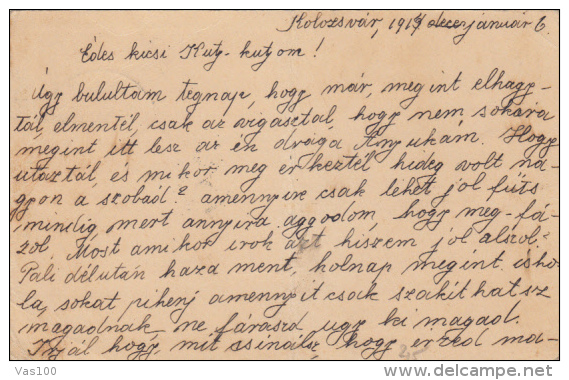 Kolozsvár, 1917 decz január 6.
Édes kicsi Kuty-kutyom!
Úgy bulultam tegnap, hogy már, megint elhagy-
tál, elmentél, csak az vigasztal, hogy nem sokára
megint itt lesz az én drága Anyukám. Hogy
utaztál, és mikor meg érkeztél hideg volt na-
gyon a szobád? amennyire csak lehet jol füts
mindig, mert annyira aggodom, hogy meg-fá-
zol. Most amikor irok azt hiszem jol alszol?
Pali délután haza ment, holnap megint isko-
la, sokat pihenj amennyit csak szakithatsz
magadnak, ne fáraszd ugy ki magad.
Irjál hogy, mit csinálsz, hogy érzed ma-
Vas100
delcampe.net